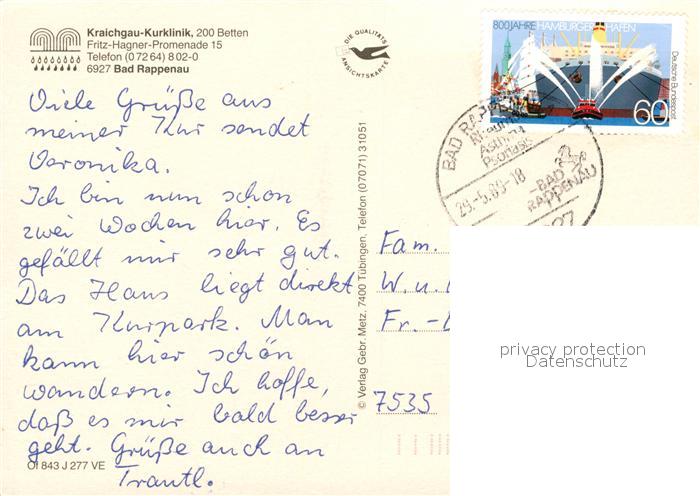 Kraichgau-Kurklinik, 200 Betten
Fritz-Hagner-Promenade 15
Telefon (0 72 64) 8 02-0
6927 Bad Rappenau
DIE QUALITÄTS
ANSICHTSKARTE
800 JAHRE HAMBURGER HAFEN
Deutsche Bundespost
60
BAD RAPPEN
Rheuma
Asthma
Psoriasis
29.-5.89-18
BAD
RAPPENAU
Viele Grüße aus
meiner Kur sendet
Veronika.
Ich bin nun schon
zwei Wochen hier. Es
gefällt mir sehr gut.
Das Haus liegt direkt
am Kurpark. Man
kann hier schön
wandern. Ich hoffe,
daß es mir bald besser
geht. Grüße auch an
Trautl.
Of 843 J 277 VE
© Verlag Gebr. Metz, 7400 Tübingen, Telefon (07071) 31051
Fam.
W. u.
Fr.-
7535
privacy protection
Datenschutz